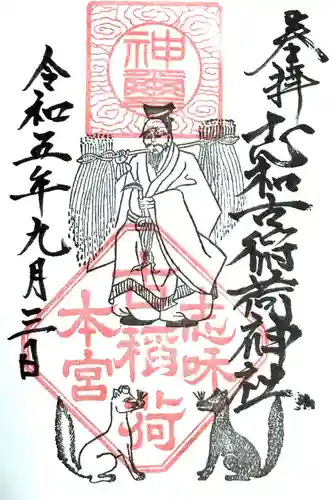 奉拝
志和古稲荷神社
神璽
志咊
古稲荷
本宮
令和五年九月三日